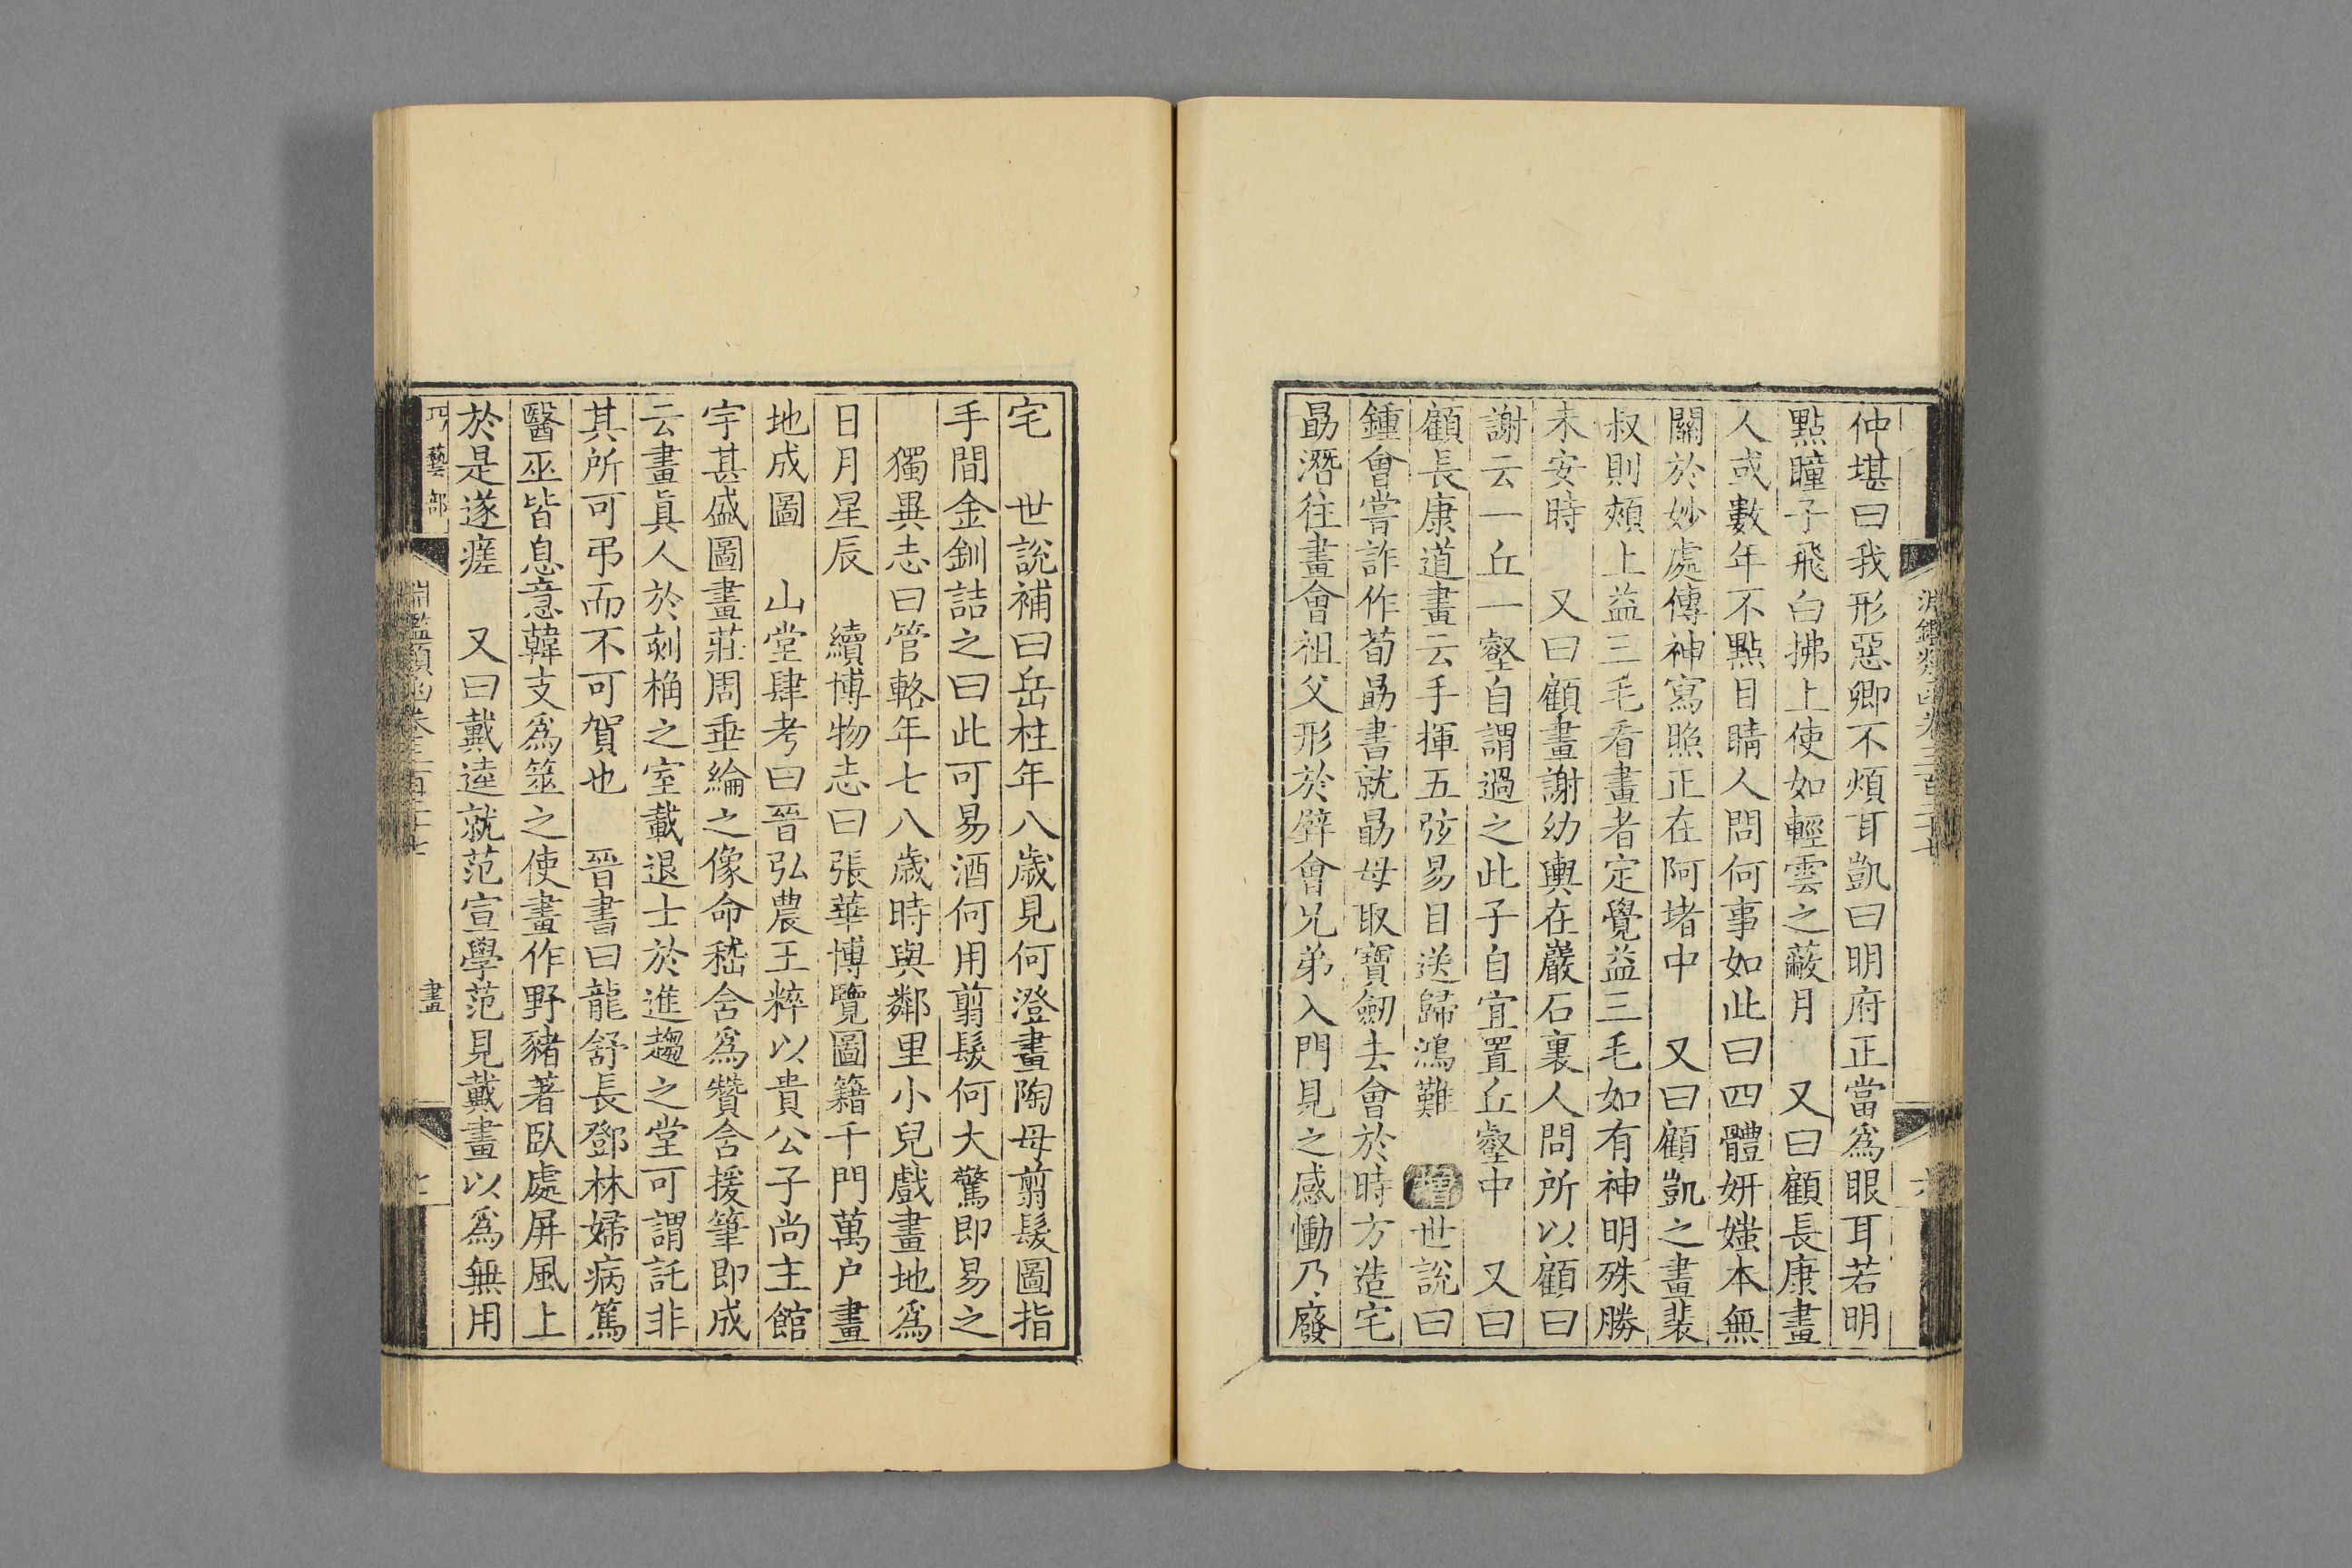 仲堪曰我形惡卿不煩耳凱曰明府正當爲眼耳若明
點瞳子飛白拂上使如輕雲之蔽月　又曰顧長康畫
人或數年不點目睛人問何事如此曰四體妍媸本無
關於妙處傳神寫照正在阿堵中　又曰顧凱之畫裴
叔則頰上益三毛看畫者定覺益三毛如有神明殊勝
未安時　又曰顧畫謝幼輿在巖石裏人問所以顧曰
謝云一丘一壑自謂過之此子自宜置丘壑中　又曰
顧長康道畫云手揮五弦易目送歸鴻難　增世說曰
鍾會嘗詐作荀勗書就勗母取寶劒去會於時方造宅
勗潛往畫會祖父形於壁會兄弟入門見之感慟乃廢
宅　世說補曰岳柱年八歲見何澄畫陶母剪髮圖指
手間金釧詰之曰此可易酒何用剪髮何大驚即易之
獨異志曰管輅年七八歲時與鄰里小兒戲畫地爲
日月星辰　續博物志曰張華博覽圖籍千門萬戶畫
地成圖　山堂肆考曰晉弘農王粹以貴公子尚主館
宇甚盛圖畫莊周垂綸之像命嵇含爲贊含援筆即成
云畫眞人於刻桷之室載退士於進趨之堂可謂託非
其所可弔而不可賀也　晉書曰龍舒長鄧林婦病篤
醫巫皆息意韓友爲筮之使畫作野豬著臥處屏風上
於是遂瘥　又曰戴逵就范宣學范見戴畫以爲無用
巧藝部　淵鑑類函卷三百二十七　畫　七